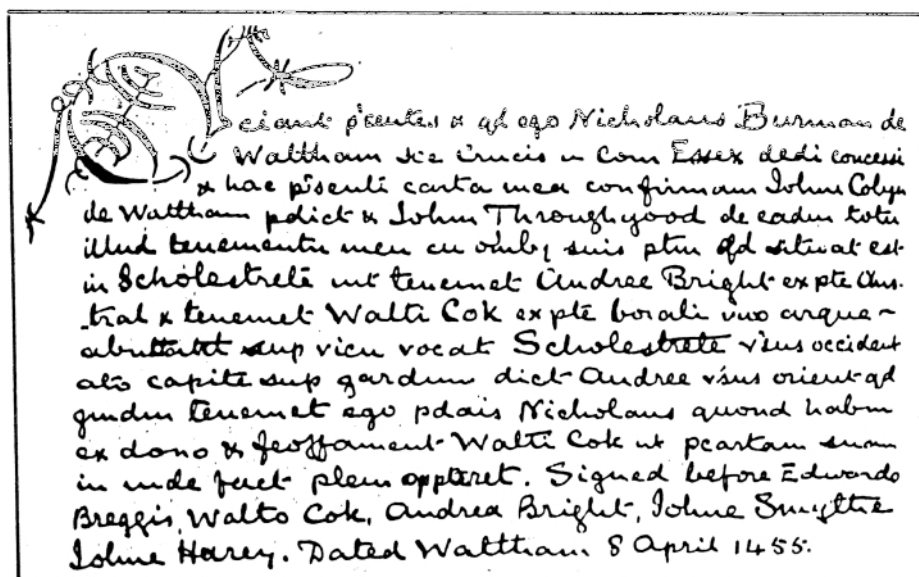 Sciant p'sentes & qd ego Nicholaus Burman de
Waltham s'ce Crucis in Com Essex dedi concessi
& hac p'senti carta mea confirmam Iohni Colyn
de Waltham pdict & Iohni Throughgood de eadm totu
illud tenementu meu cu omīby suis ptin qd situat est
in Scholestrete int tenemet Andree Bright ex pte Aus-
tral & tenemet Walti Cok ex pte borali
abuttabt sup vicu vocat Scholestrete v'sus occident
alto capite sup gardinu dict Andree v'sus orient qd
quidm tenemet ego pdais Nicholaus quond habui
ex dono & feoffament Walti Cok ut p cartam suam
in inde fact plein apparet. Signed before Edwardo
Breggis, Walto Cok, Andrea Bright, Iohne Smythe
Iohne Harey. Dated Waltham. 8 April 1455.